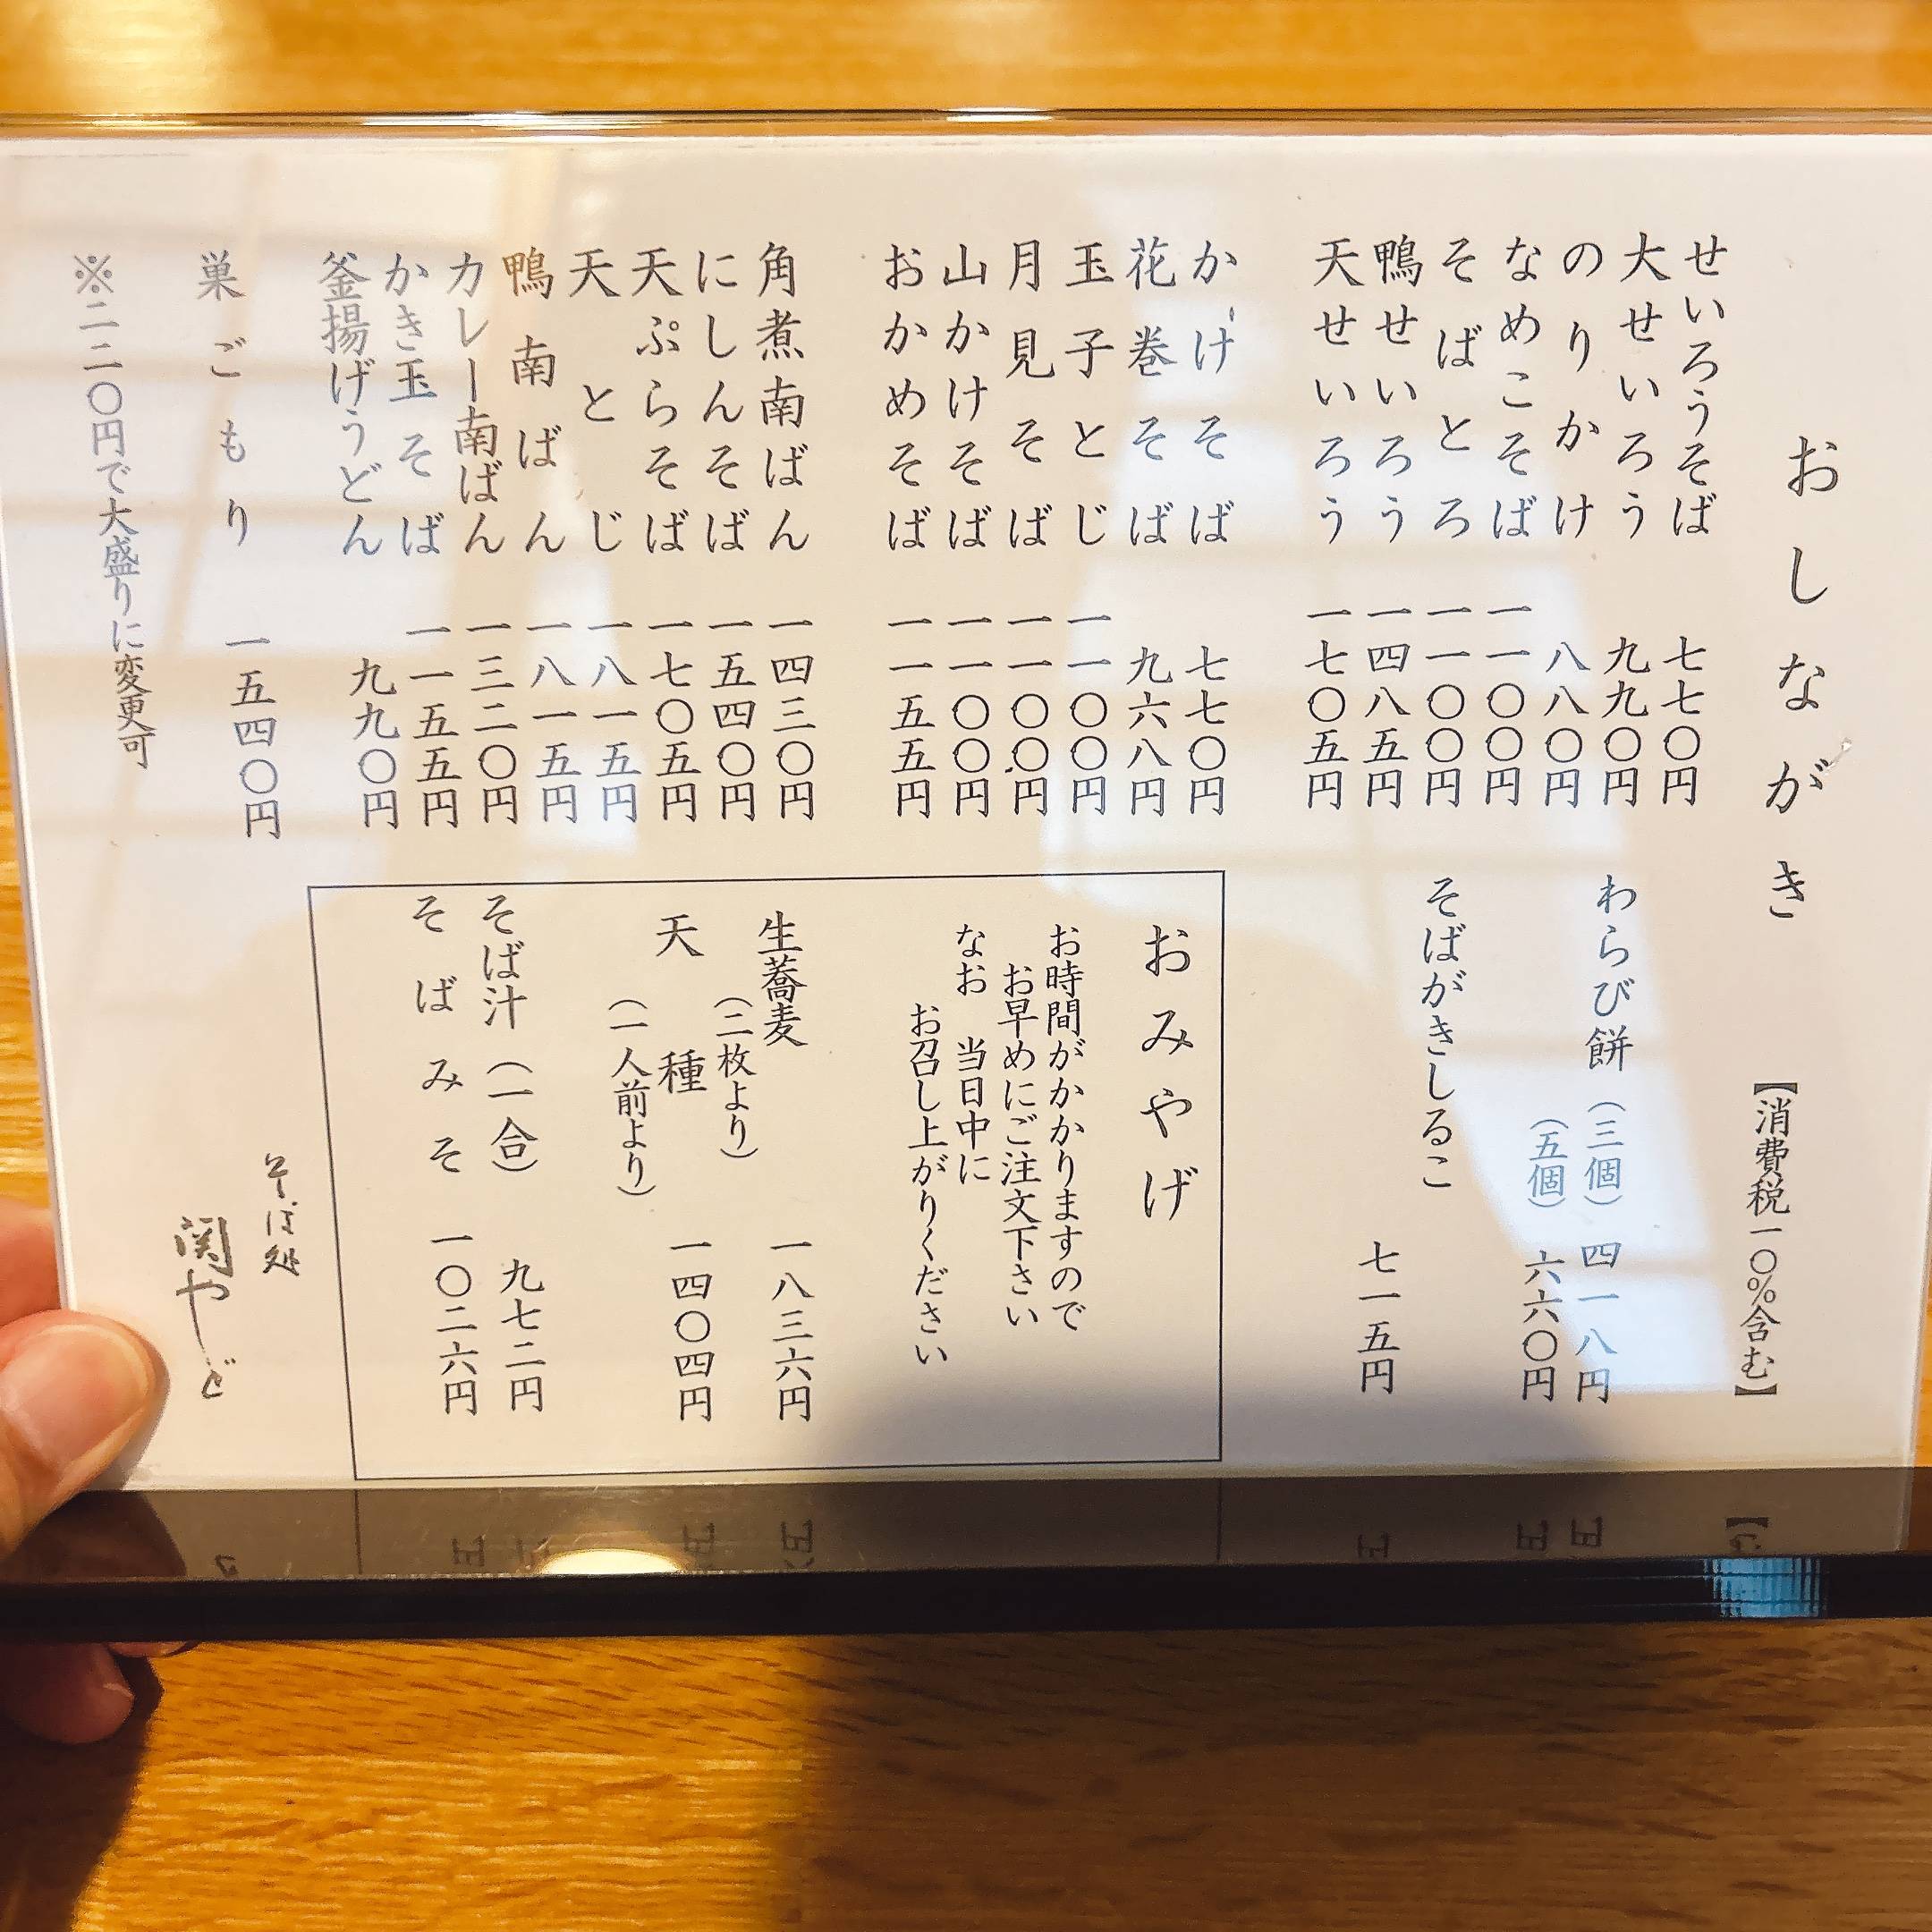 おしながき
【消費税一〇%含む】
せいろうそば 七七〇円
大せいろう 九九〇円
のりかけ 八八〇円
なめこそば 一一〇〇円
そばとろ 一一〇〇円
鴨せいろう 一四八五円
天せいろう 一七〇五円
かけそば 七七〇円
花巻そば 九六八円
玉子とじ 一一〇〇円
月見そば 一一〇〇円
山かけそば 一一〇〇円
おかめそば 一一五五円
角煮南ばん 一四三〇円
にしんそば 一五四〇円
天ぷらそば 一七〇五円
天とじ 一八一五円
鴨南ばん 一八一五円
カレー南ばん 一三二〇円
かき玉そば 一一五五円
釜揚げうどん 九九〇円
巣ごもり 一五四〇円
※二二〇円で大盛りに変更可
わらび餅(三個) 四一八円
(五個) 六六〇円
そばがきしるこ 七一五円
おみやげ
お時間がかかりますので
お早めにご注文下さい
なお 当日中に
お召し上がりください
生蕎麦
(二枚より) 一八三六円
天種
(一人前より) 一四〇四円
そば汁(一合) 九七二円
そばみそ 一〇二六円
そば処
関やど